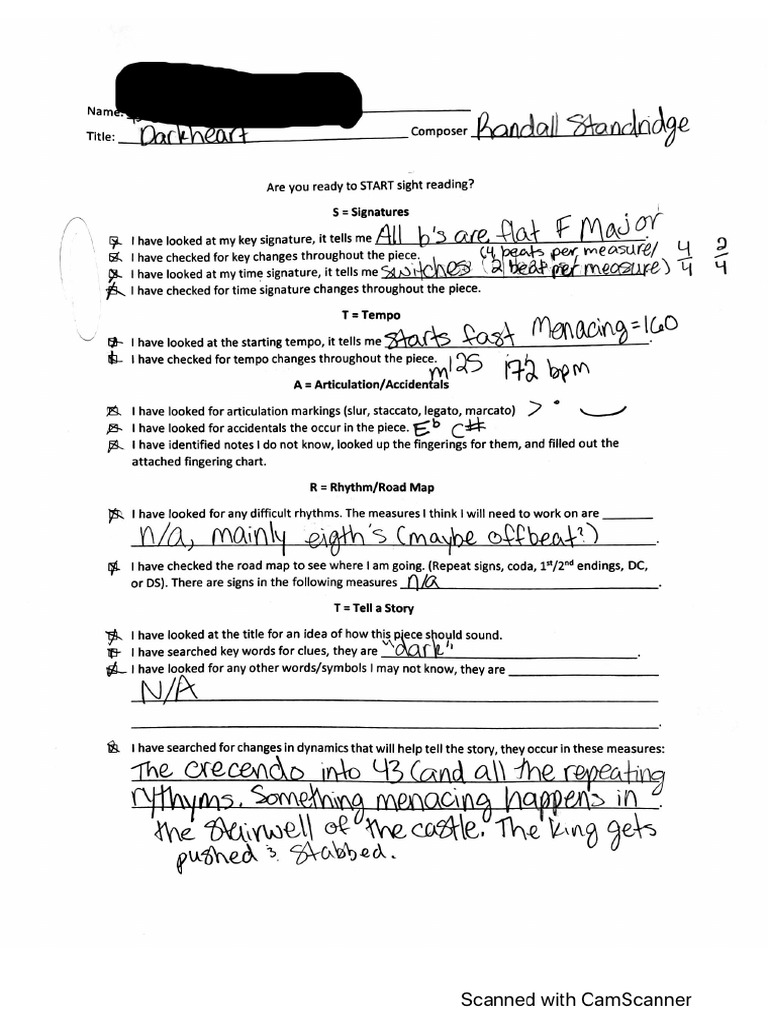 Name:
Title: Darkheart Composer Randall Standridge
Are you ready to START sight reading?
S = Signatures
I have looked at my key signature, it tells me All b's are flat F Major
I have checked for key changes throughout the piece. (4 beats per measure/ 4/4 2/4
I have looked at my time signature, it tells me switches (2 beat per measure)
I have checked for time signature changes throughout the piece.
T = Tempo
I have looked at the starting tempo, it tells me starts fast Menacing=160.
I have checked for tempo changes throughout the piece. m125 172 bpm
A = Articulation/Accidentals
I have looked for articulation markings (slur, staccato, legato, marcato) >
I have looked for accidentals the occur in the piece. Eb C#
I have identified notes I do not know, looked up the fingerings for them, and filled out the
attached fingering chart.
R = Rhythm/Road Map
I have looked for any difficult rhythms. The measures I think I will need to work on are
n/a, mainly eigth's (maybe offbeat?).
I have checked the road map to see where I am going. (Repeat signs, coda, 1st/2nd endings, DC,
or DS). There are signs in the following measures n/a.
T = Tell a Story
I have looked at the title for an idea of how this piece should sound.
I have searched key words for clues, they are "dark".
I have looked for any other words/symbols I may not know, they are
N/A
.
I have searched for changes in dynamics that will help tell the story, they occur in these measures:
The crecendo into 43 (and all the repeating
rythyms. Something menacing happens in.
the stairwell of the castle. The king gets
pushed & stabbed.
Scanned with CamScanner